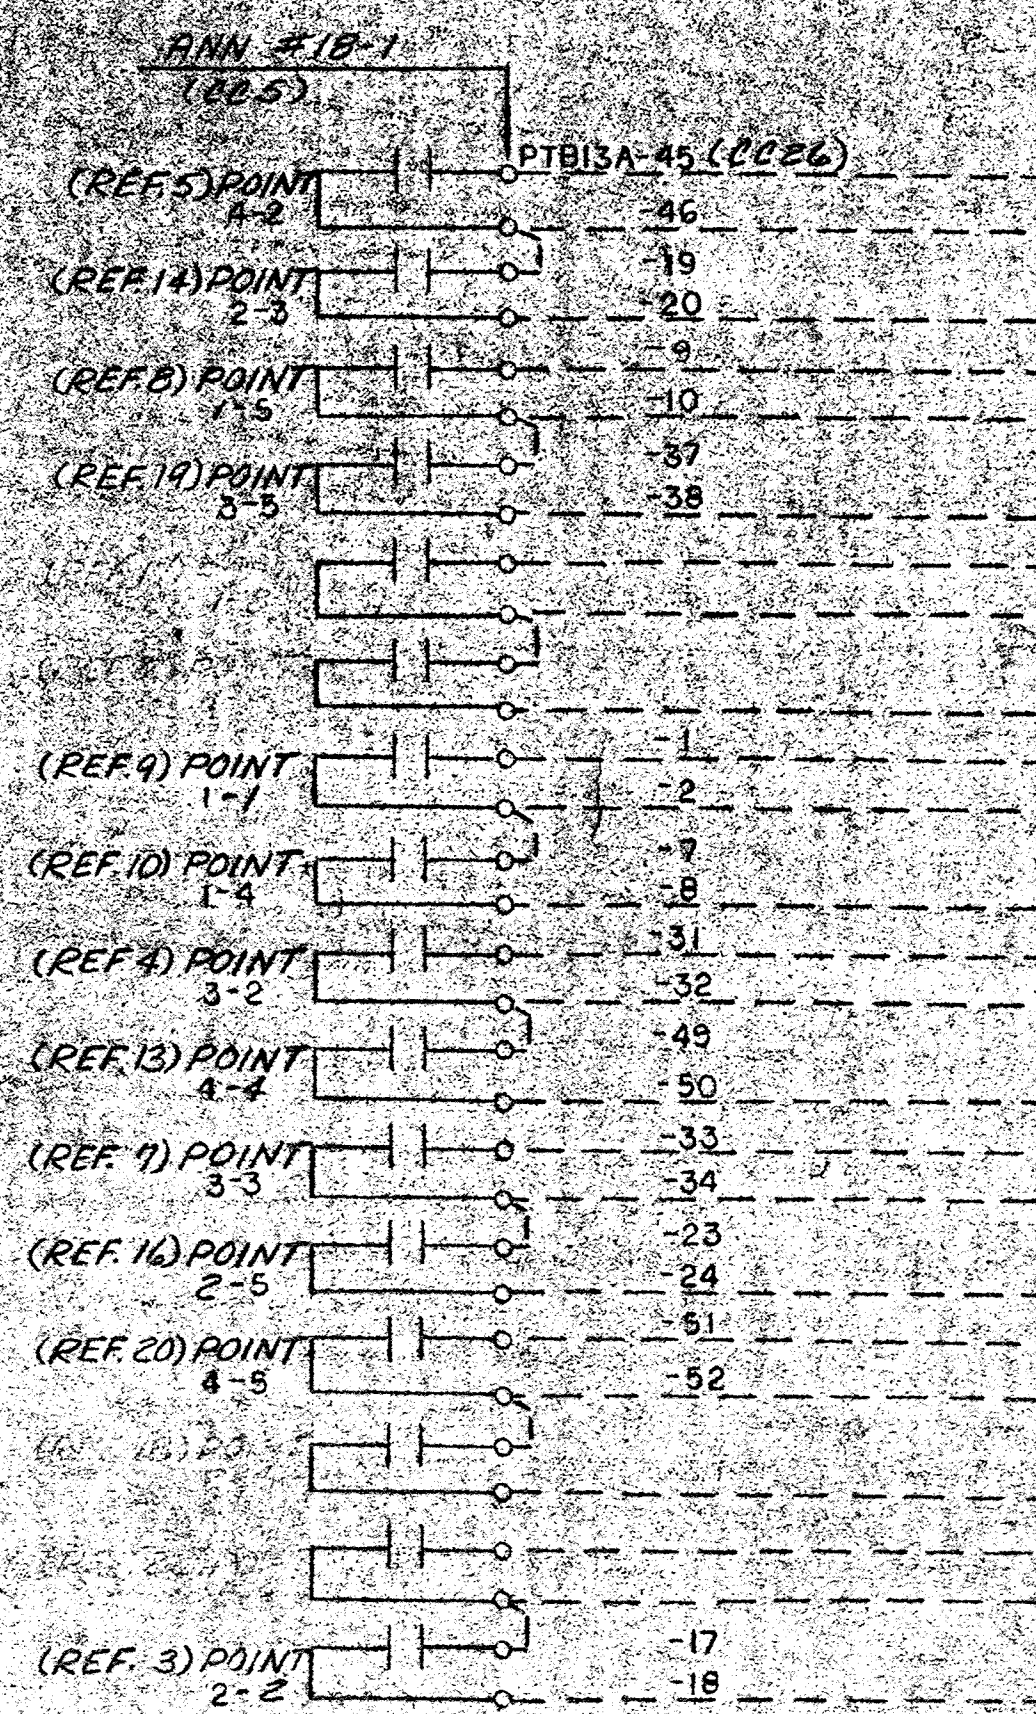 ANN #18-1
(CC5)
PTB13A-45 (CC26)
(REF. 5) POINT
4-2
-46
-19
(REF. 14) POINT
2-3
-20
-9
(REF 8) POINT
1-5
-10
-37
(REF. 19) POINT
3-5
-38
-1
(REF. 9) POINT
1-1
-2
-7
(REF. 10) POINT
1-4
-8
-31
(REF 4) POINT
3-2
-32
-49
(REF. 13) POINT
4-4
-50
-33
(REF. 7) POINT
3-3
-34
-23
(REF. 16) POINT
2-5
-24
-51
(REF. 20) POINT
4-5
-52
-17
(REF. 3) POINT
2-2
-18